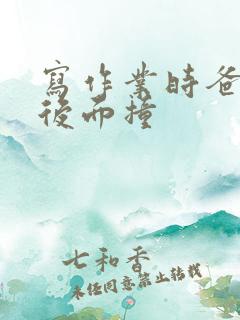 寫作業時爸
後而撞
七和香
未经同意禁止转载